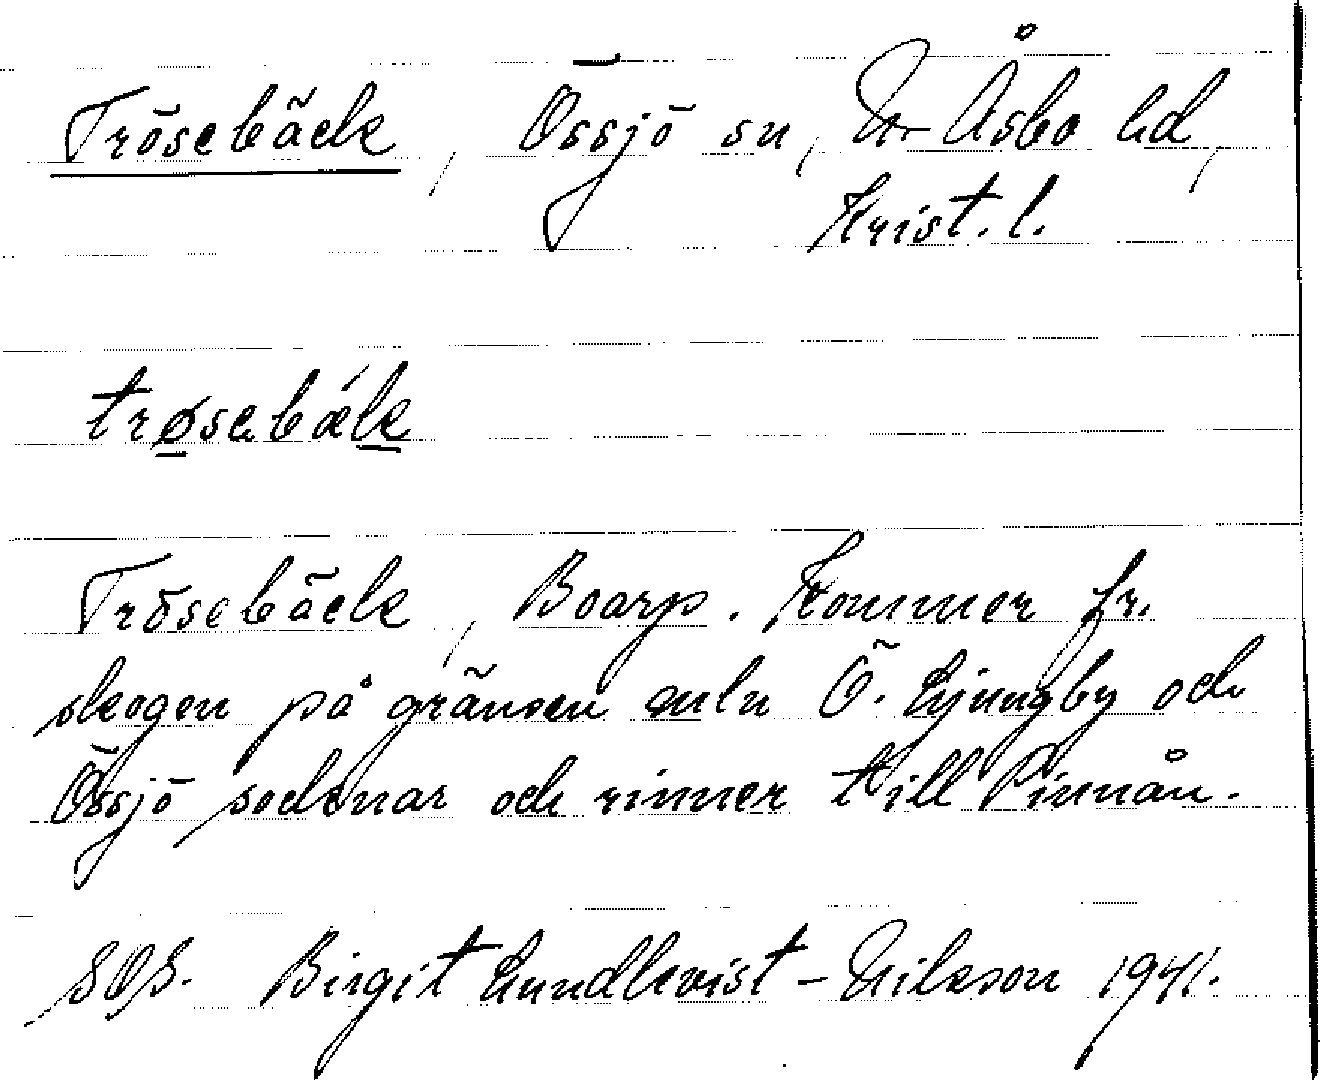 Trösebäck, Össjö sn, N. Åsbo hd,
Krist. l.
trøsebæk
Trösebäck, Boarp. Kommer fr.
skogen på gränsen mln Ö. Ljungby och
Össjö socknar och rinner till Pinnån.
SOS. Birgit Lundkvist-Nilsson 1941.